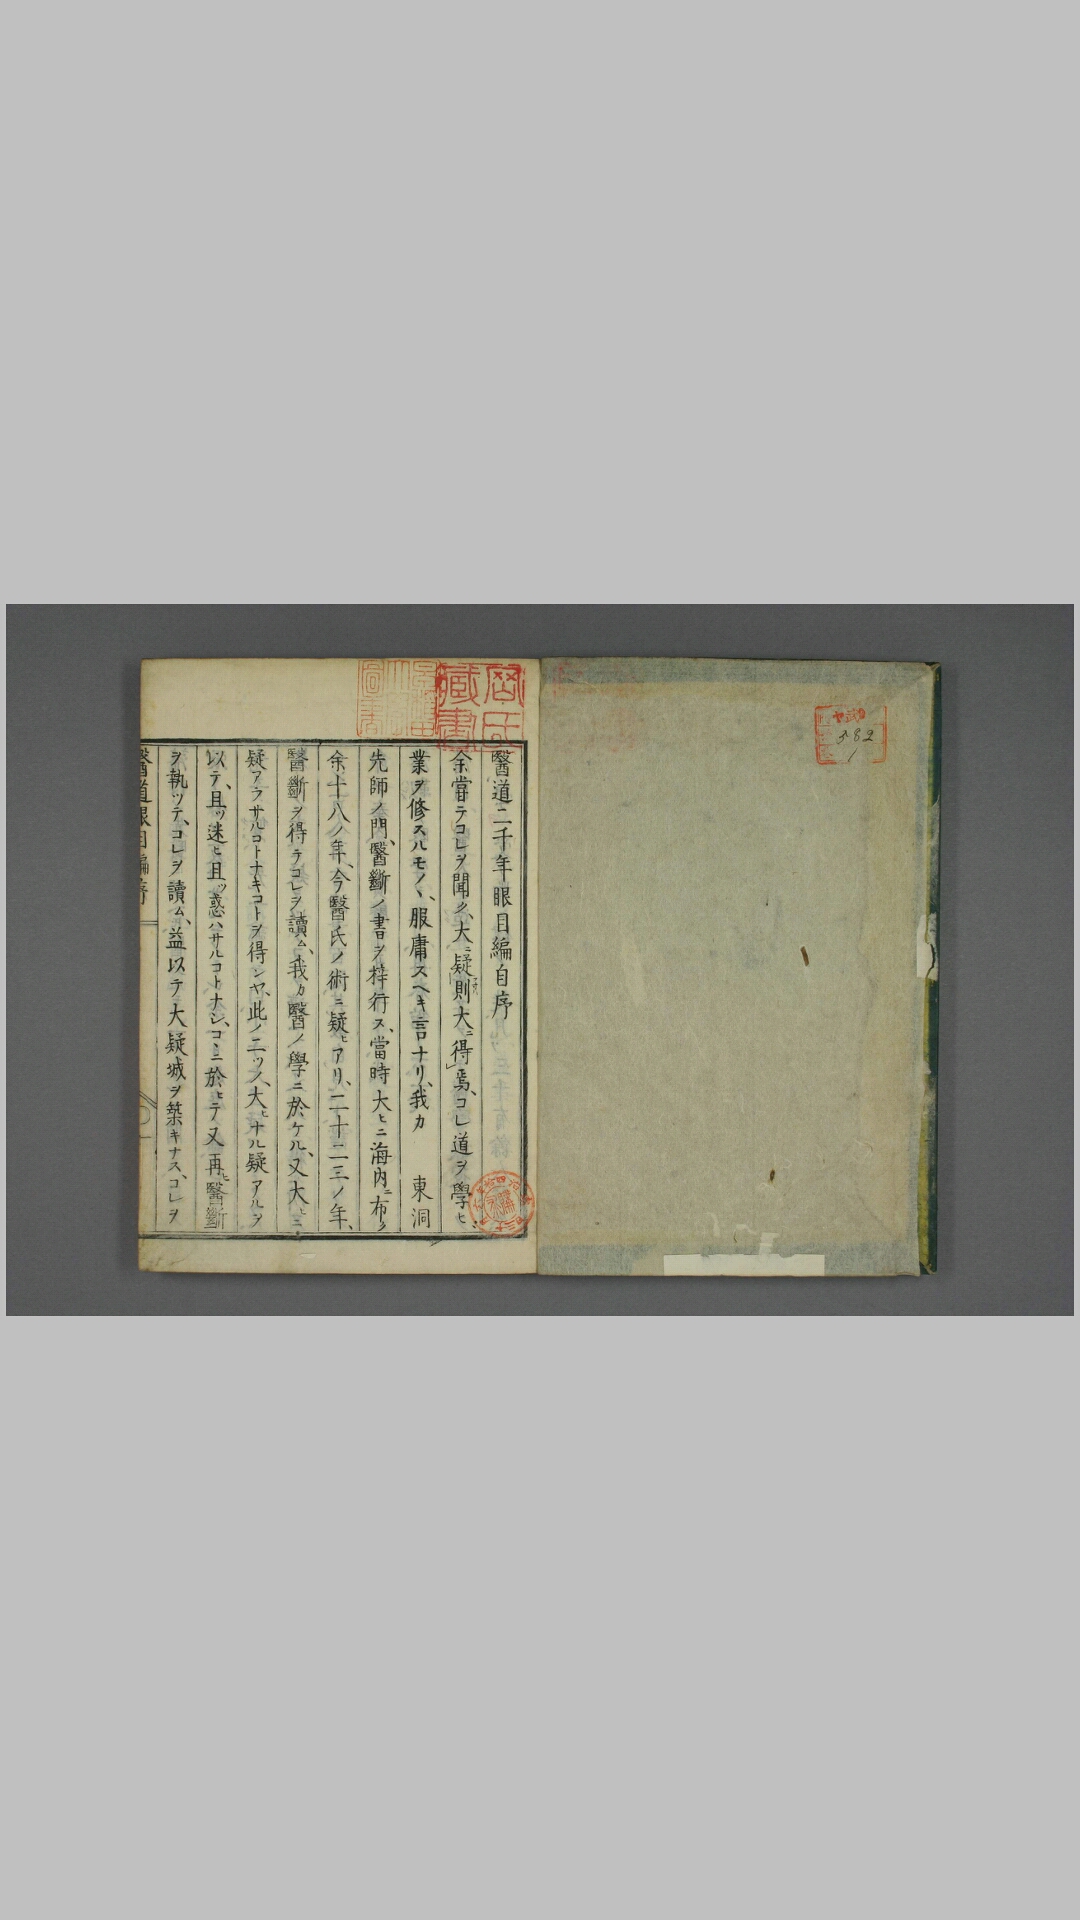 382
1
醫道二千年眼目編自序
余嘗テコレヲ聞ク、大ニ疑則大ニ得焉、コレ道ヲ學ヒ、
業ヲ修スルモノヽ、服膺スヘキ言ナリ、我カ 東洞
先師ノ門、醫斷ノ書ヲ梓行ス、當時大ヒニ海内ニ布ク
余十八ノ年、今醫氏ノ術ニ疑ヒアリ、二十二三ノ年、
醫斷ヲ得テコレヲ讀ム、我カ醫ノ學ニ於ケル、又大ヒニ
疑アラサルコトナキコトヲ得ンヤ、此ノ二ツノ大ヒナル疑アルヲ
以テ、且ツ迷ヒ且ツ惑ハサルコトナシ、コヽニ於ヒテ又再ヒ醫斷
ヲ執ツテ、コレヲ讀ム、益以テ大疑城ヲ築キナス、コレヲ
醫道眼目編序
藏書